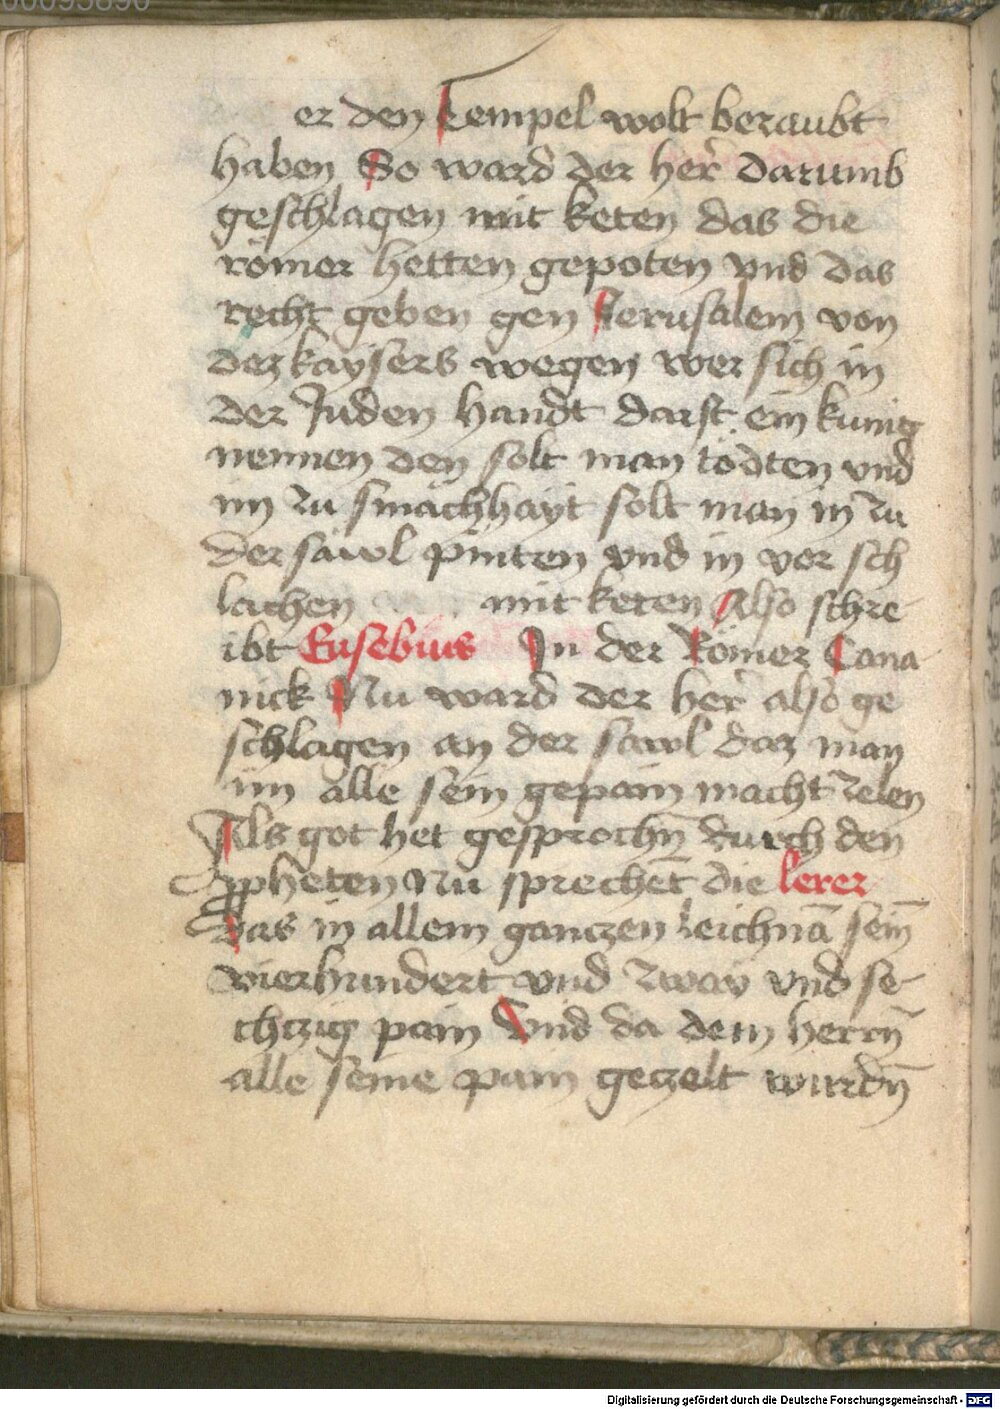 00095890
er den tempel wolt beraubt
haben So ward der her̄ darumb
geschlagen mit keten das die
römer hetten gepoten vnd das
recht geben gen Jerusalem von
dez kaysers wegen wer sich in
der Juden handt darst ein kunig
nennen den solt man tödten vnd
im zu smachhayt solt man in zu
der sawl pinten vnd in vor sch
lachen mit keten Also schre-
ibt Eusebius In der Römer Cana
nick Nu ward der her̄ also ge
schlagen an der sawl daz man
im alle sein gepain macht zelen
Als got het gesprochn̄ durch den
ppheten Nu sprechēt die lerer
das in allem ganczen leichnā sein̄
vierhundert vnd zway vnd se-
chczig pain Vnd da dem herrn̄
alle seine pain geczelt wurdn̄
Digitalisierung gefördert durch die Deutsche Forschungsgemeinschaft - DFG